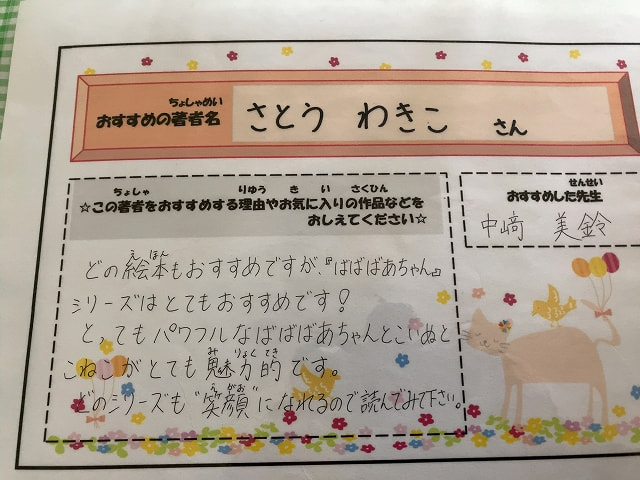 おすすめの著者名 さとう わきこ さん
ちょしゃめい
☆この著者をおすすめする理由やお気に入りの作品などを
ちょしゃ りゆう き い さくひん
おしえてください☆
どの絵本もおすすめですが、『ばばばあちゃん』
えほん
シリーズはとてもおすすめです!
とってもパワフルなばばばあちゃんとこいぬと
こねこがとても魅力的です。
みりょくてき
どのシリーズも"笑顔"になれるので読んでみて下さい。
えがお
おすすめした先生
せんせい
中﨑 美鈴